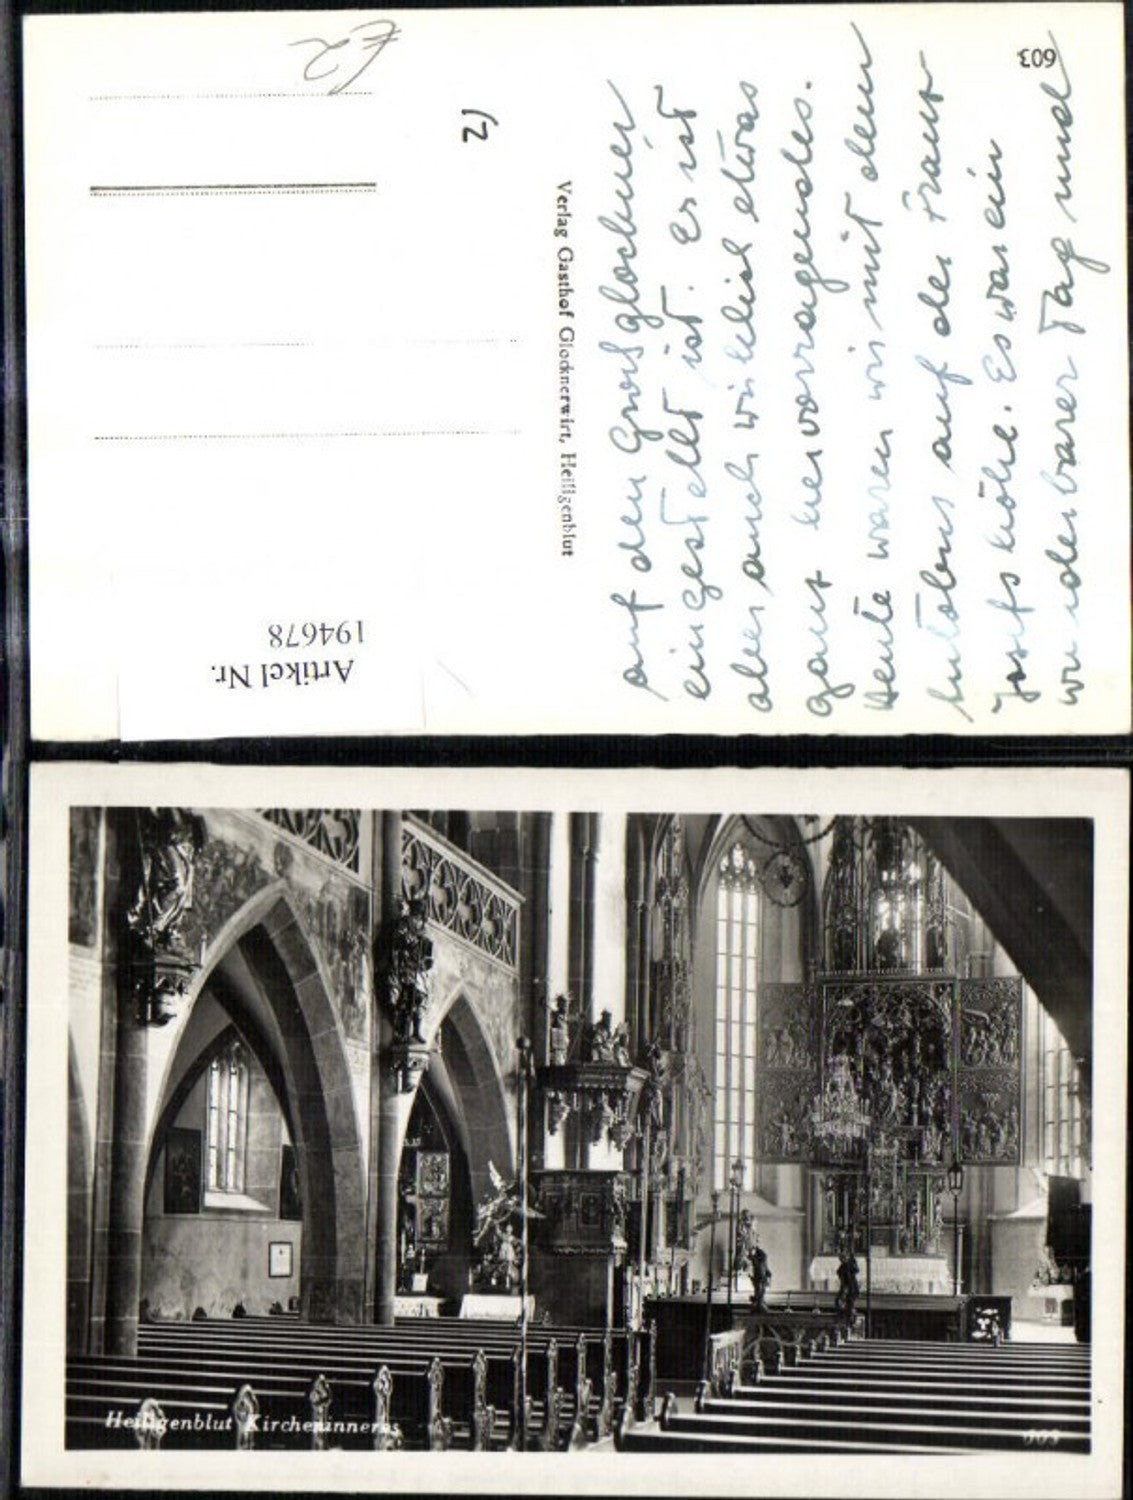 603
2)
£2
Verlag Gasthof Glocknerwirt, Heiligenblut
Artikel Nr.
194678
auf den Grossglockner
eingestellt ist. Es ist
aber auch wirklich etwas
ganz hervorragendes.
Heute waren wir mit dem
Autobus auf der Franz
Josefs höhe. Es war ein
wunderbarer Tag und
Heiligenblut Kircheninneres
603